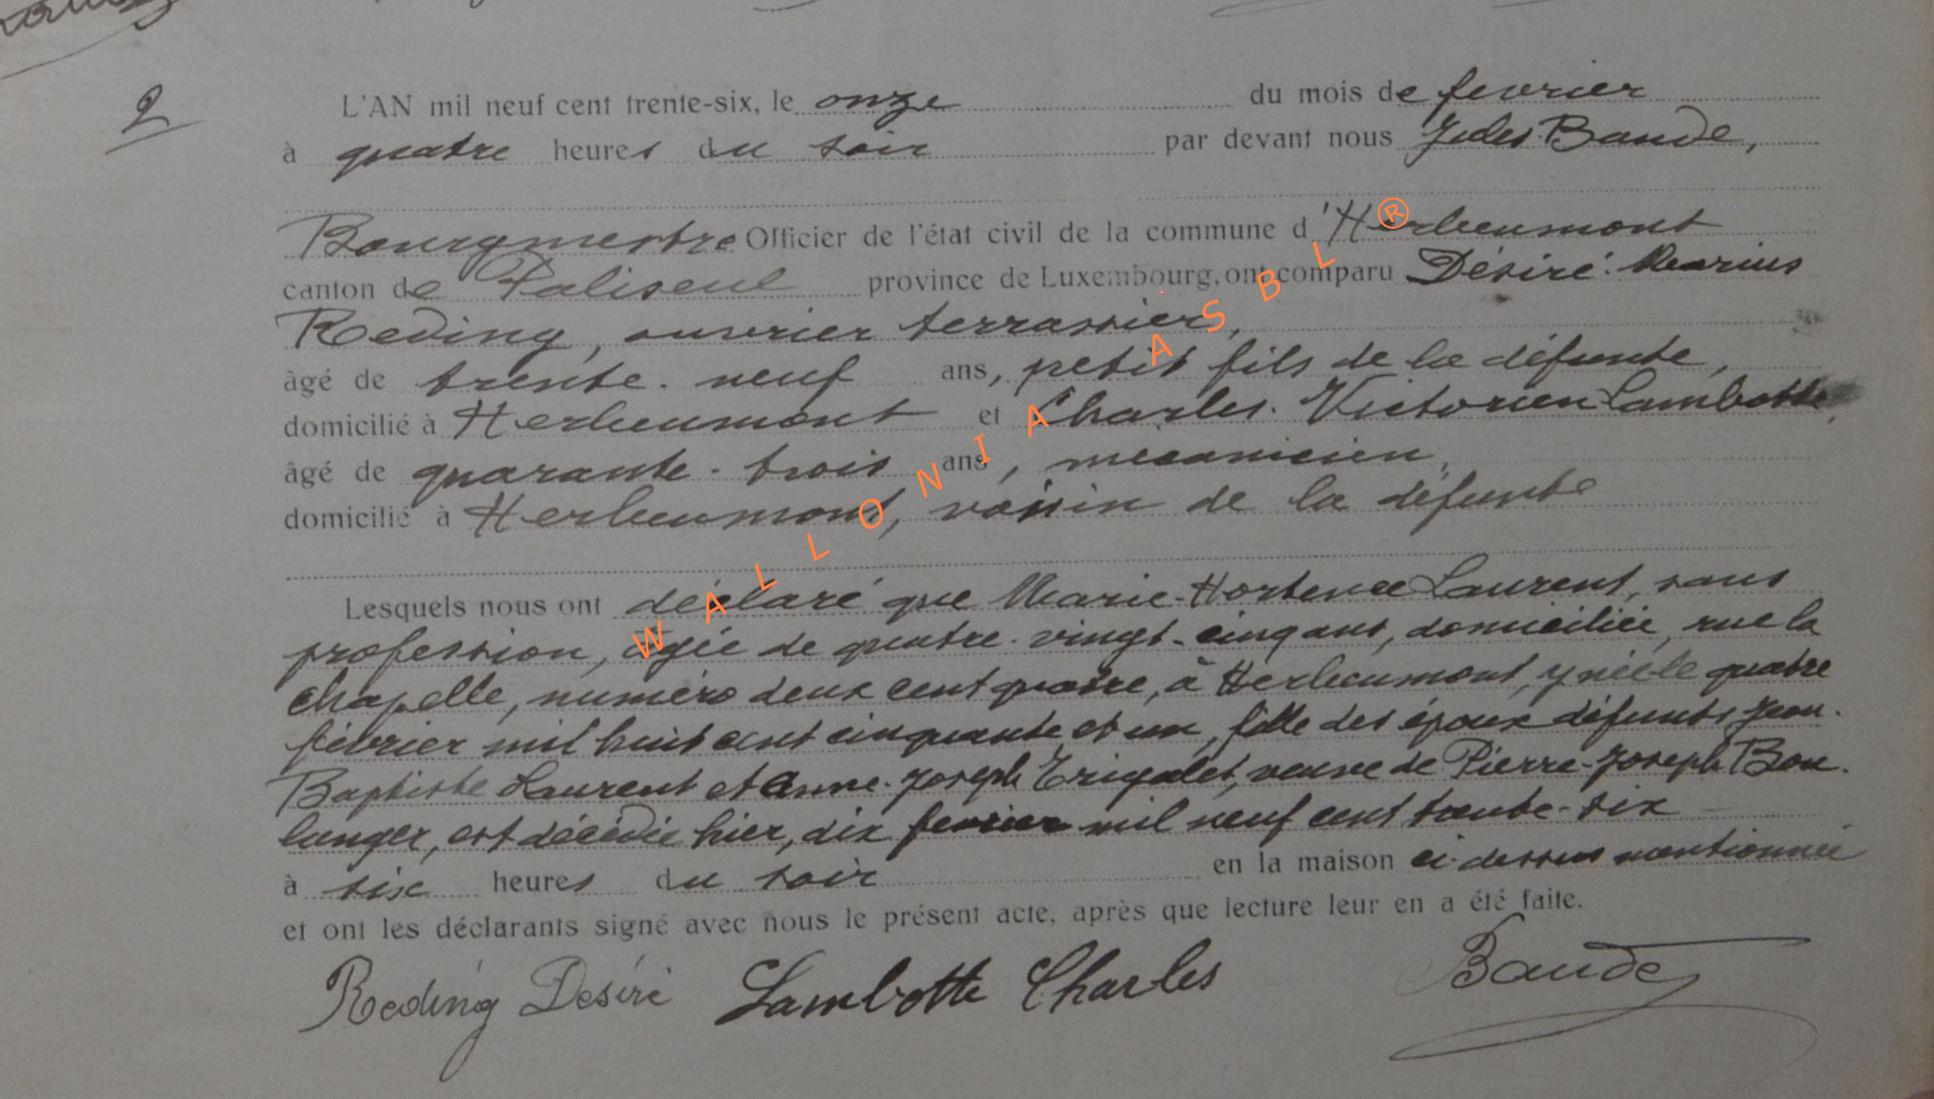 2
L'AN mil neuf cent trente-six, le onze du mois de fevrier
à quatre heures du soir par devant nous Jules Baude,
Bourgmestre Officier de l'état civil de la commune d'Herbeumont
canton de Paliseul province de Luxembourg, ont comparu Désiré-Marius
Roeding, ouvrier terrassier,
âgé de trente-neuf ans, petit fils de la défunte,
domicilié à Herbeumont et Charles-Victorien Lambotte,
âgé de quarante-trois ans, mécanicien,
domicilié à Herbeumont, voisin de la défunte
Lesquels nous ont déclaré que Marie-Hortence Laurent, sans
profession, âgée de quatre-vingt-cinq ans, domiciliée, rue la
chapelle, numéro deux cent quatre, à Herbeumont, y née le quatre
février mil huit cent cinquante et un, fille des époux défunts Jean-
Baptiste Laurent et Anne-Joseph Trigalet, veuve de Pierre-Joseph Bou-
langer, est décédée hier, dix fevrier mil neuf cent trente-six
à six heures du soir en la maison ci-dessus mentionnée
et ont les déclarants signé avec nous le présent acte, après que lecture leur en a été faite.
Roeding Désiré Lambotte Charles Baude
WALLONIA ASBL ®